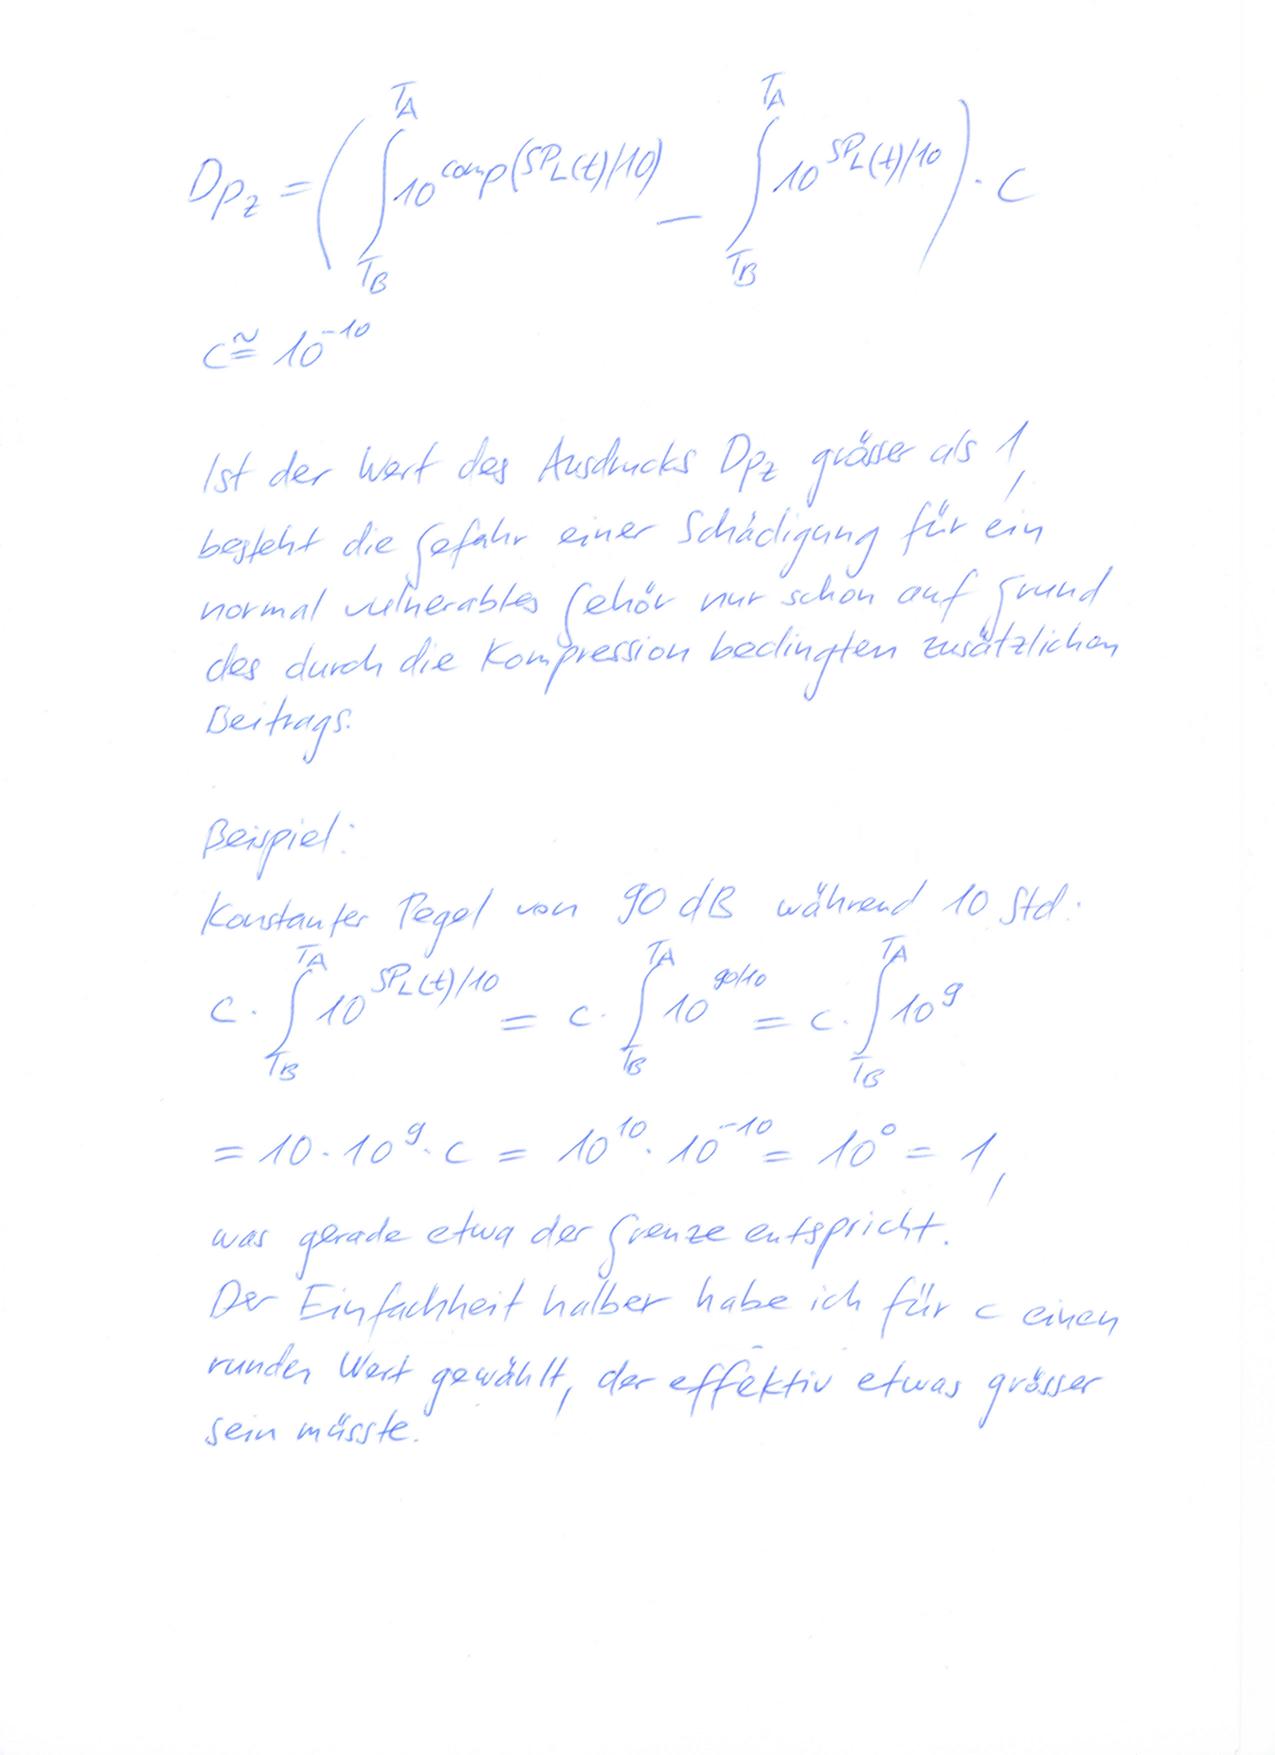 D_{Pz} = ( ∫_{T_B}^{T_A} 10^{comp(SP_L(t)/10)} − ∫_{T_B}^{T_A} 10^{SP_L(t)/10} ) · c
c ≅ 10^{-10}
Ist der Wert des Ausdrucks D_{Pz} grösser als 1,
besteht die Gefahr einer Schädigung für ein
normal vulnerables Gehör nur schon auf Grund
des durch die Kompression bedingten zusätzlichen
Beitrags.
Beispiel:
Konstanter Pegel von 90 dB während 10 Std.:
c · ∫_{T_B}^{T_A} 10^{SP_L(t)/10} = c · ∫_{T_B}^{T_A} 10^{90/10} = c · ∫_{T_B}^{T_A} 10^9
= 10 · 10^9 · c = 10^{10} · 10^{-10} = 10^0 = 1,
was gerade etwa der Grenze entspricht.
Der Einfachheit halber habe ich für c einen
runden Wert gewählt, der effektiv etwas grösser
sein müsste.